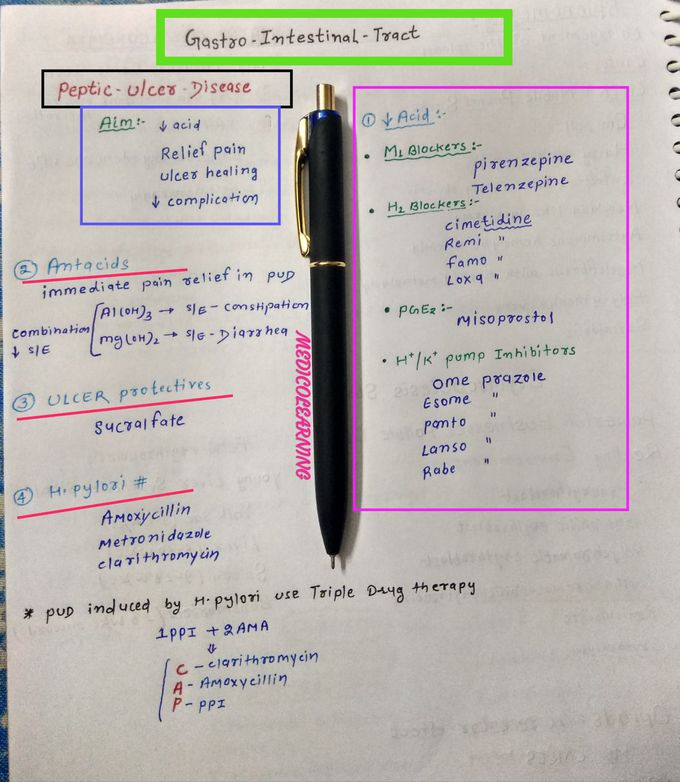 Gastro-Intestinal-Tract
Peptic-Ulcer-Disease
Aim:- ↓ acid
Relief pain
ulcer healing
↓ complication
① ↓ Acid:-
• M1 Blockers:-
pirenzepine
Telenzepine
• H2 Blockers:-
cimetidine
Remi "
famo "
Loxa "
• PGE2:-
Misoprostol
• H+/K+ pump Inhibitors
Ome prazole
Esome "
panto "
Lanso "
Rabe "
② Antacids
immediate pain relief in PUD
combination ↓ S/E
Al(OH)3 → S/E - constipation
mg(OH)2 → S/E - Diarrhea
③ ULCER protectives
Sucralfate
④ H.pylori #
Amoxycillin
Metronidazole
clarithromycin
MEDICOLEARNING
* PUD induced by H.pylori use Triple Drug therapy
1PPI + 2AMA
⇓
C - clarithromycin
A - Amoxycillin
P - PPI